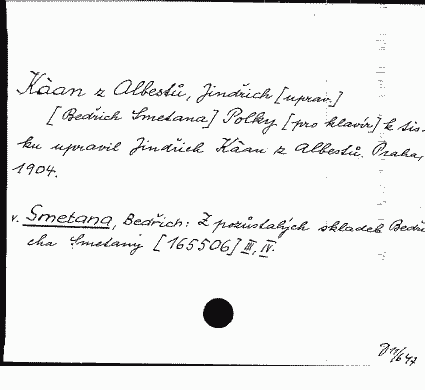 Kàan z Albestů, Jindřich [uprav.]
[Bedřich Smetana] Polky [pro klavír] k tis-
ku upravil Jindřich Kàan z Albestů. Praha,
1904.
v. Smetana, Bedřich: Z pozůstalých skladeb Bedři
cha Smetany [165506] III, IV.